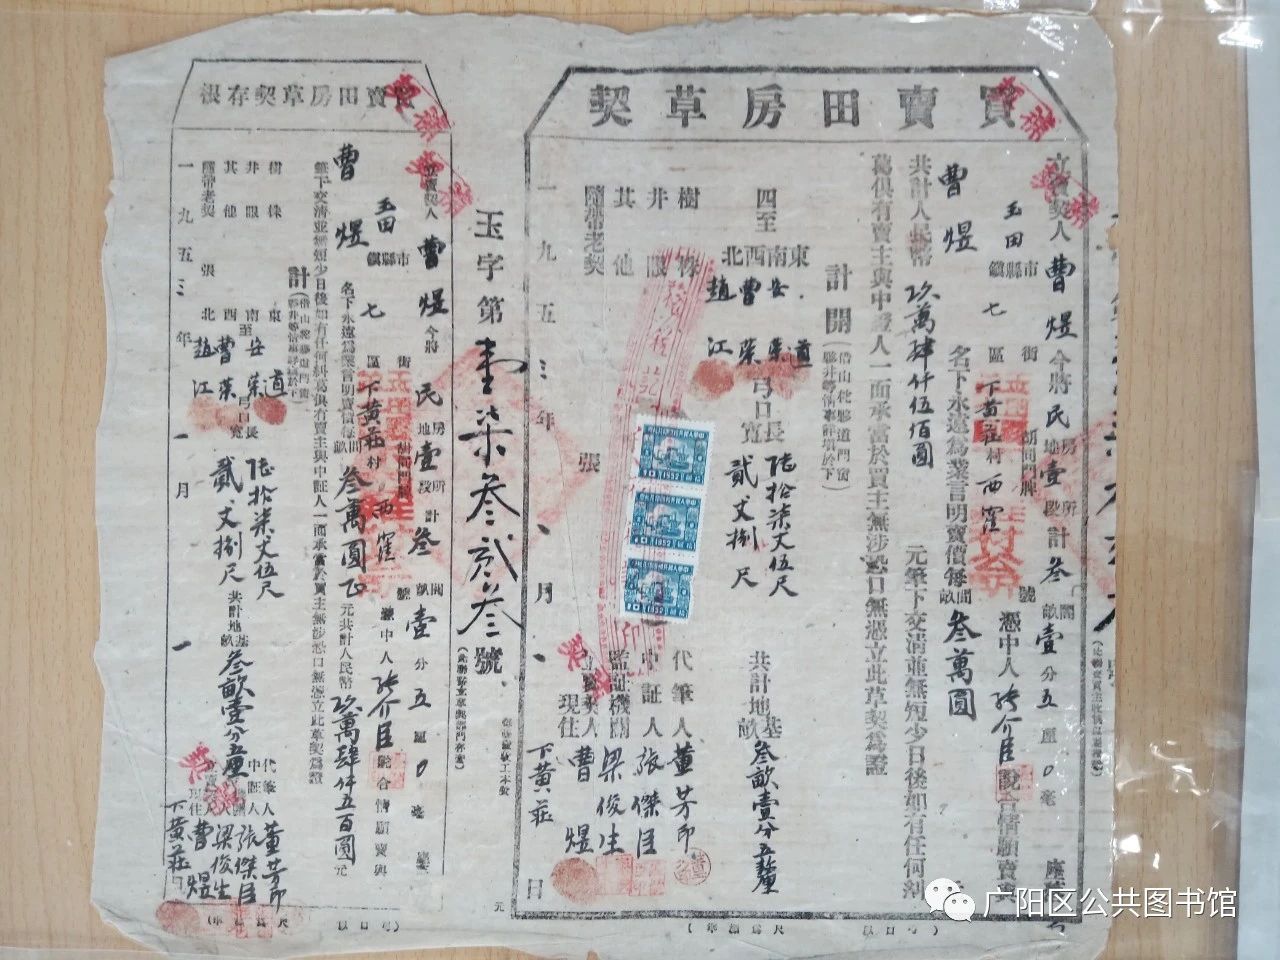 買賣田房草契
立賣契人曹煜今將民房地壹所段計叁間畝壹分五厘0毫
玉田市縣鎮七街區下黃莊村胡同門牌西窪號憑中人張介臣說合情願賣與
曹煜名下永遠為業言明賣價每間畝叁萬圓
共計人民幣玖萬肆仟伍佰圓元筆下交清並無短少日後如有任何糾
葛俱有賣主與中證人一面承當於買主無涉恐口無憑立此草契為證
計開
四至
東道
南安榮
西曹榮
北趙江
弓口
長陆拾柒丈伍尺
寬貳丈捌尺
共計地基畝叁畝壹分五釐
樹株
井眼
其他
隨帶老契張
代筆人董芳節
中証人張傑臣
監証機關梁俊生
立賣契人曹煜
現住下黃莊
一九五三年、月、日
1952
1952
1952
玉字第壹柒叁貳叁號
買賣田房草契存根
立賣契人曹煜今將民房地壹所段計叁間畝壹分五厘0毫
玉田市縣鎮七街區下黃莊村西窪號憑中人張介臣說合情願賣與
曹煜名下永遠為業言明賣價每間畝叁萬圓正元共計人民幣玖萬肆仟五百圓元
筆下交清並無短少日後如有任何糾葛俱有賣主與中証人一面承當於買主無涉恐口無憑立此草契為證
計
東道
南安榮
西曹榮
北趙江
弓口
長陆拾柒丈伍尺
寬貳丈捌尺
共計地基畝叁畝壹分五釐
樹株
井眼
其他
隨帶老契張
代筆人董芳節
中証人張傑臣
梁俊生
曹煜
現住下黃莊
一九五三年一月一日
广阳区公共图书馆